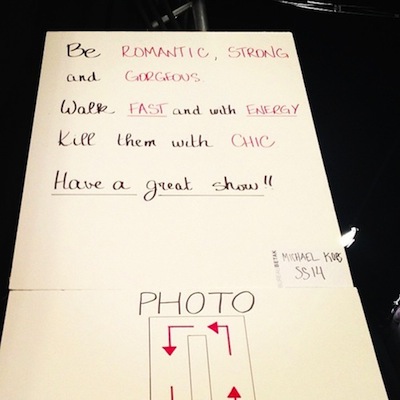 Be ROMANTIC, STRONG
and GORGEOUS
Walk FAST and with ENERGY
Kill them with CHIC
Have a great show!!
BETAK
MICHAEL KORS
SS14
PHOTO